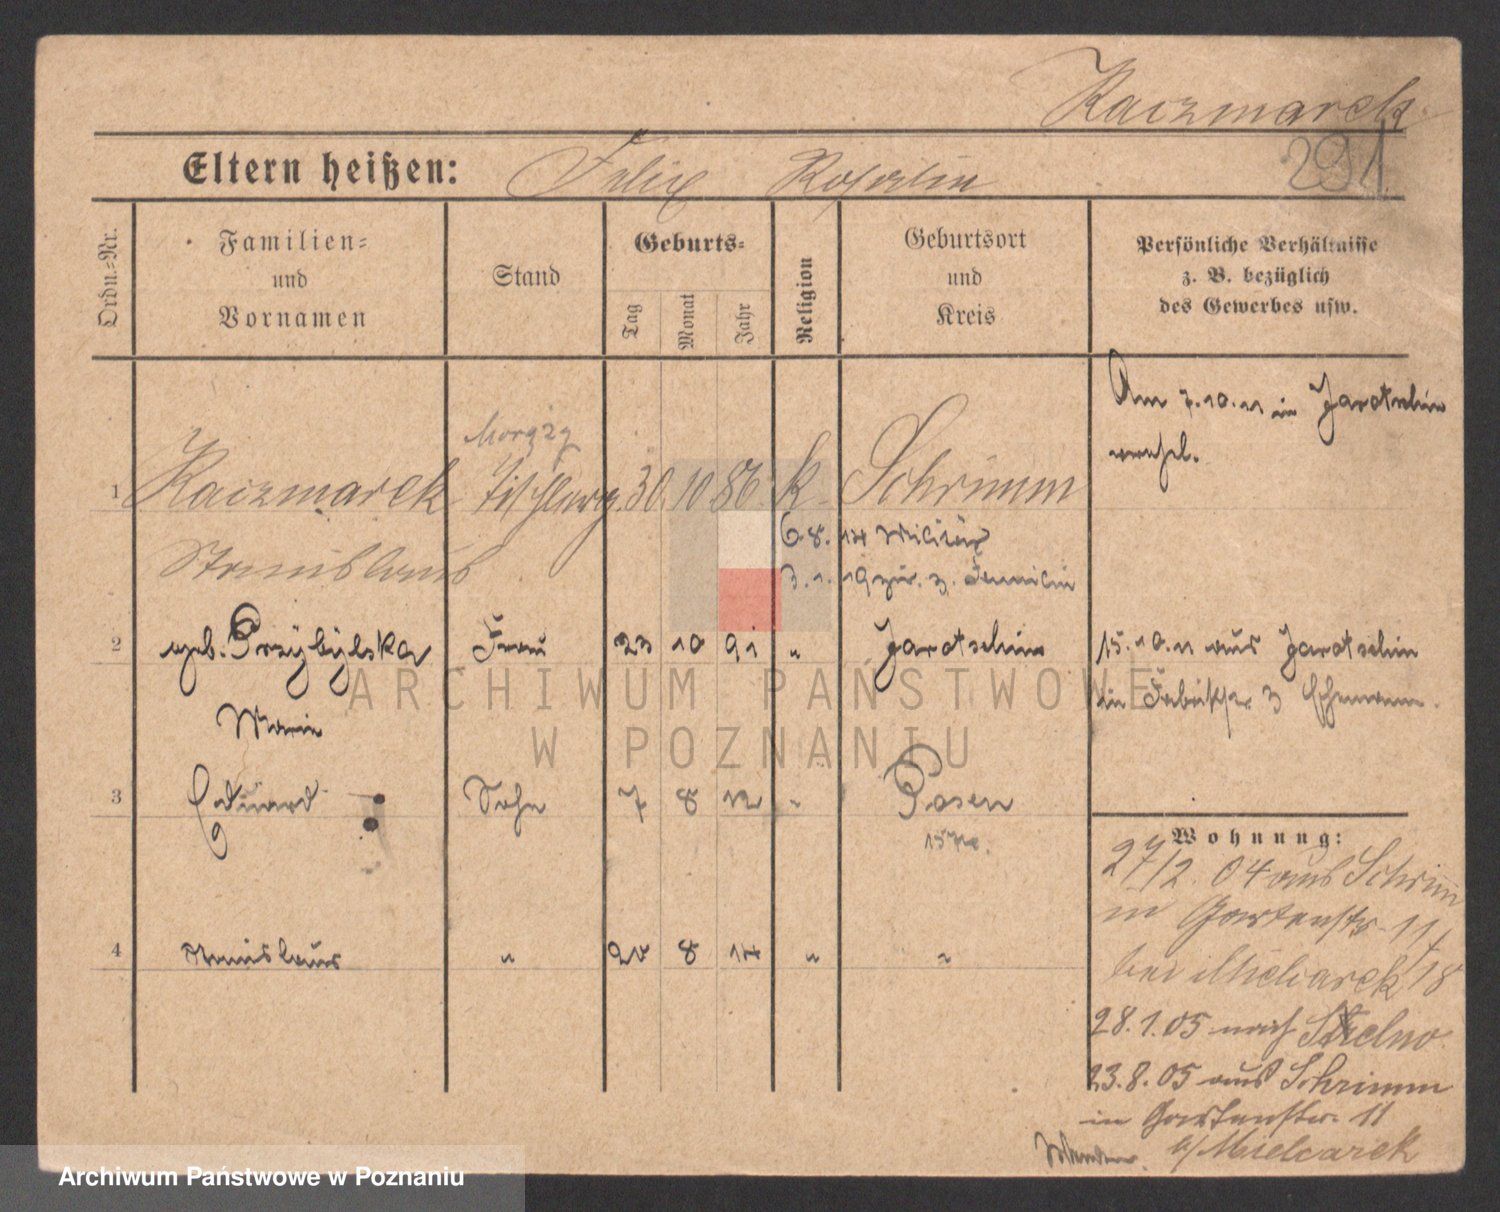 Kaczmarek
291
Eltern heißen: Felix Rosalia
Ordn.-Nr.
Familien-
und
Vornamen
Stand
Geburts-
Tag
Monat
Jahr
Religion
Geburtsort
und
Kreis
Persönliche Verhältnisse
z. B. bezüglich
des Gewerbes usw.
Am 7.10.11 in Jarotschin
verehel.
1 Kaczmarek Tischlerg. 30 10 86 k. Schrimm
Stanislaus
6.8.14 Militär
3.1.19 zur. z. Familie
2 geb. Przybylska Frau 23 10 91 " Jarotschin
Marie
15.10.11 aus Jarotschin
in z Ehemann.
3 Eduard Sohn 7 8 12 " Posen
4 Stanislaus " 20 8 14 " "
Wohnung:
27/2. 04 aus Schrimm
in Gartenstr. 11/
bei Mielcarek 18
28.1.05 nach Strelno.
23.8.05 aus Schrimm
in Gartenstr. 11
b/ Mielcarek
ARCHIWUM PAŃSTWOWE
W POZNANIU
Archiwum Państwowe w Poznaniu